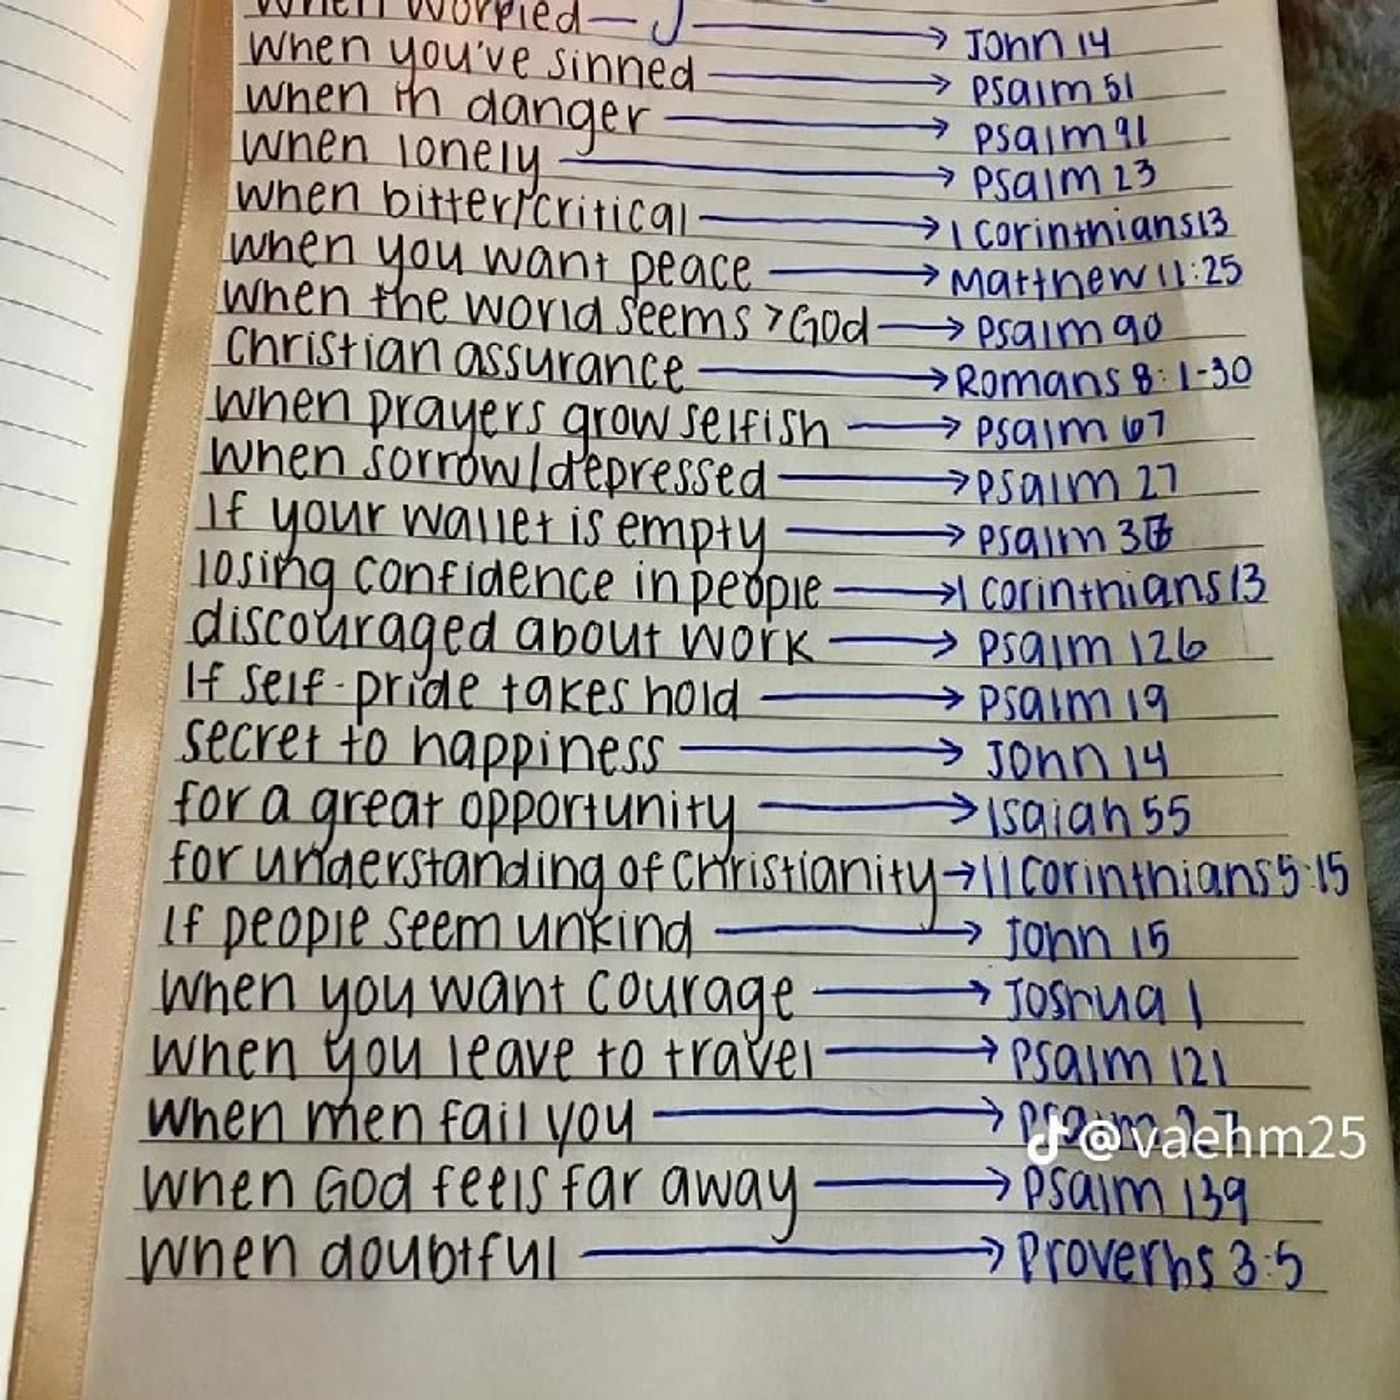 when worried → John 14
when you've sinned → Psalm 51
when in danger → Psalm 91
when lonely → Psalm 23
when bitter/critical → 1 Corinthians 13
when you want peace → Matthew 11:25
when the world seems > God → Psalm 90
Christian assurance → Romans 8:1-30
when prayers grow selfish → Psalm 67
when sorrow/depressed → Psalm 27
If your wallet is empty → Psalm
losing confidence in people → 1 Corinthians 13
discouraged about work → Psalm 126
If self-pride takes hold → Psalm 19
secret to happiness → John 14
for a great opportunity → Isaiah 55
for understanding of Christianity → 11 Corinthians 5:15
If people seem unkind → John 15
when you want courage → Joshua 1
when you leave to travel → Psalm 121
when men fail you → Psalm 27
@vaehm25
when God feels far away → Psalm 139
when doubtful → Proverbs 3:5